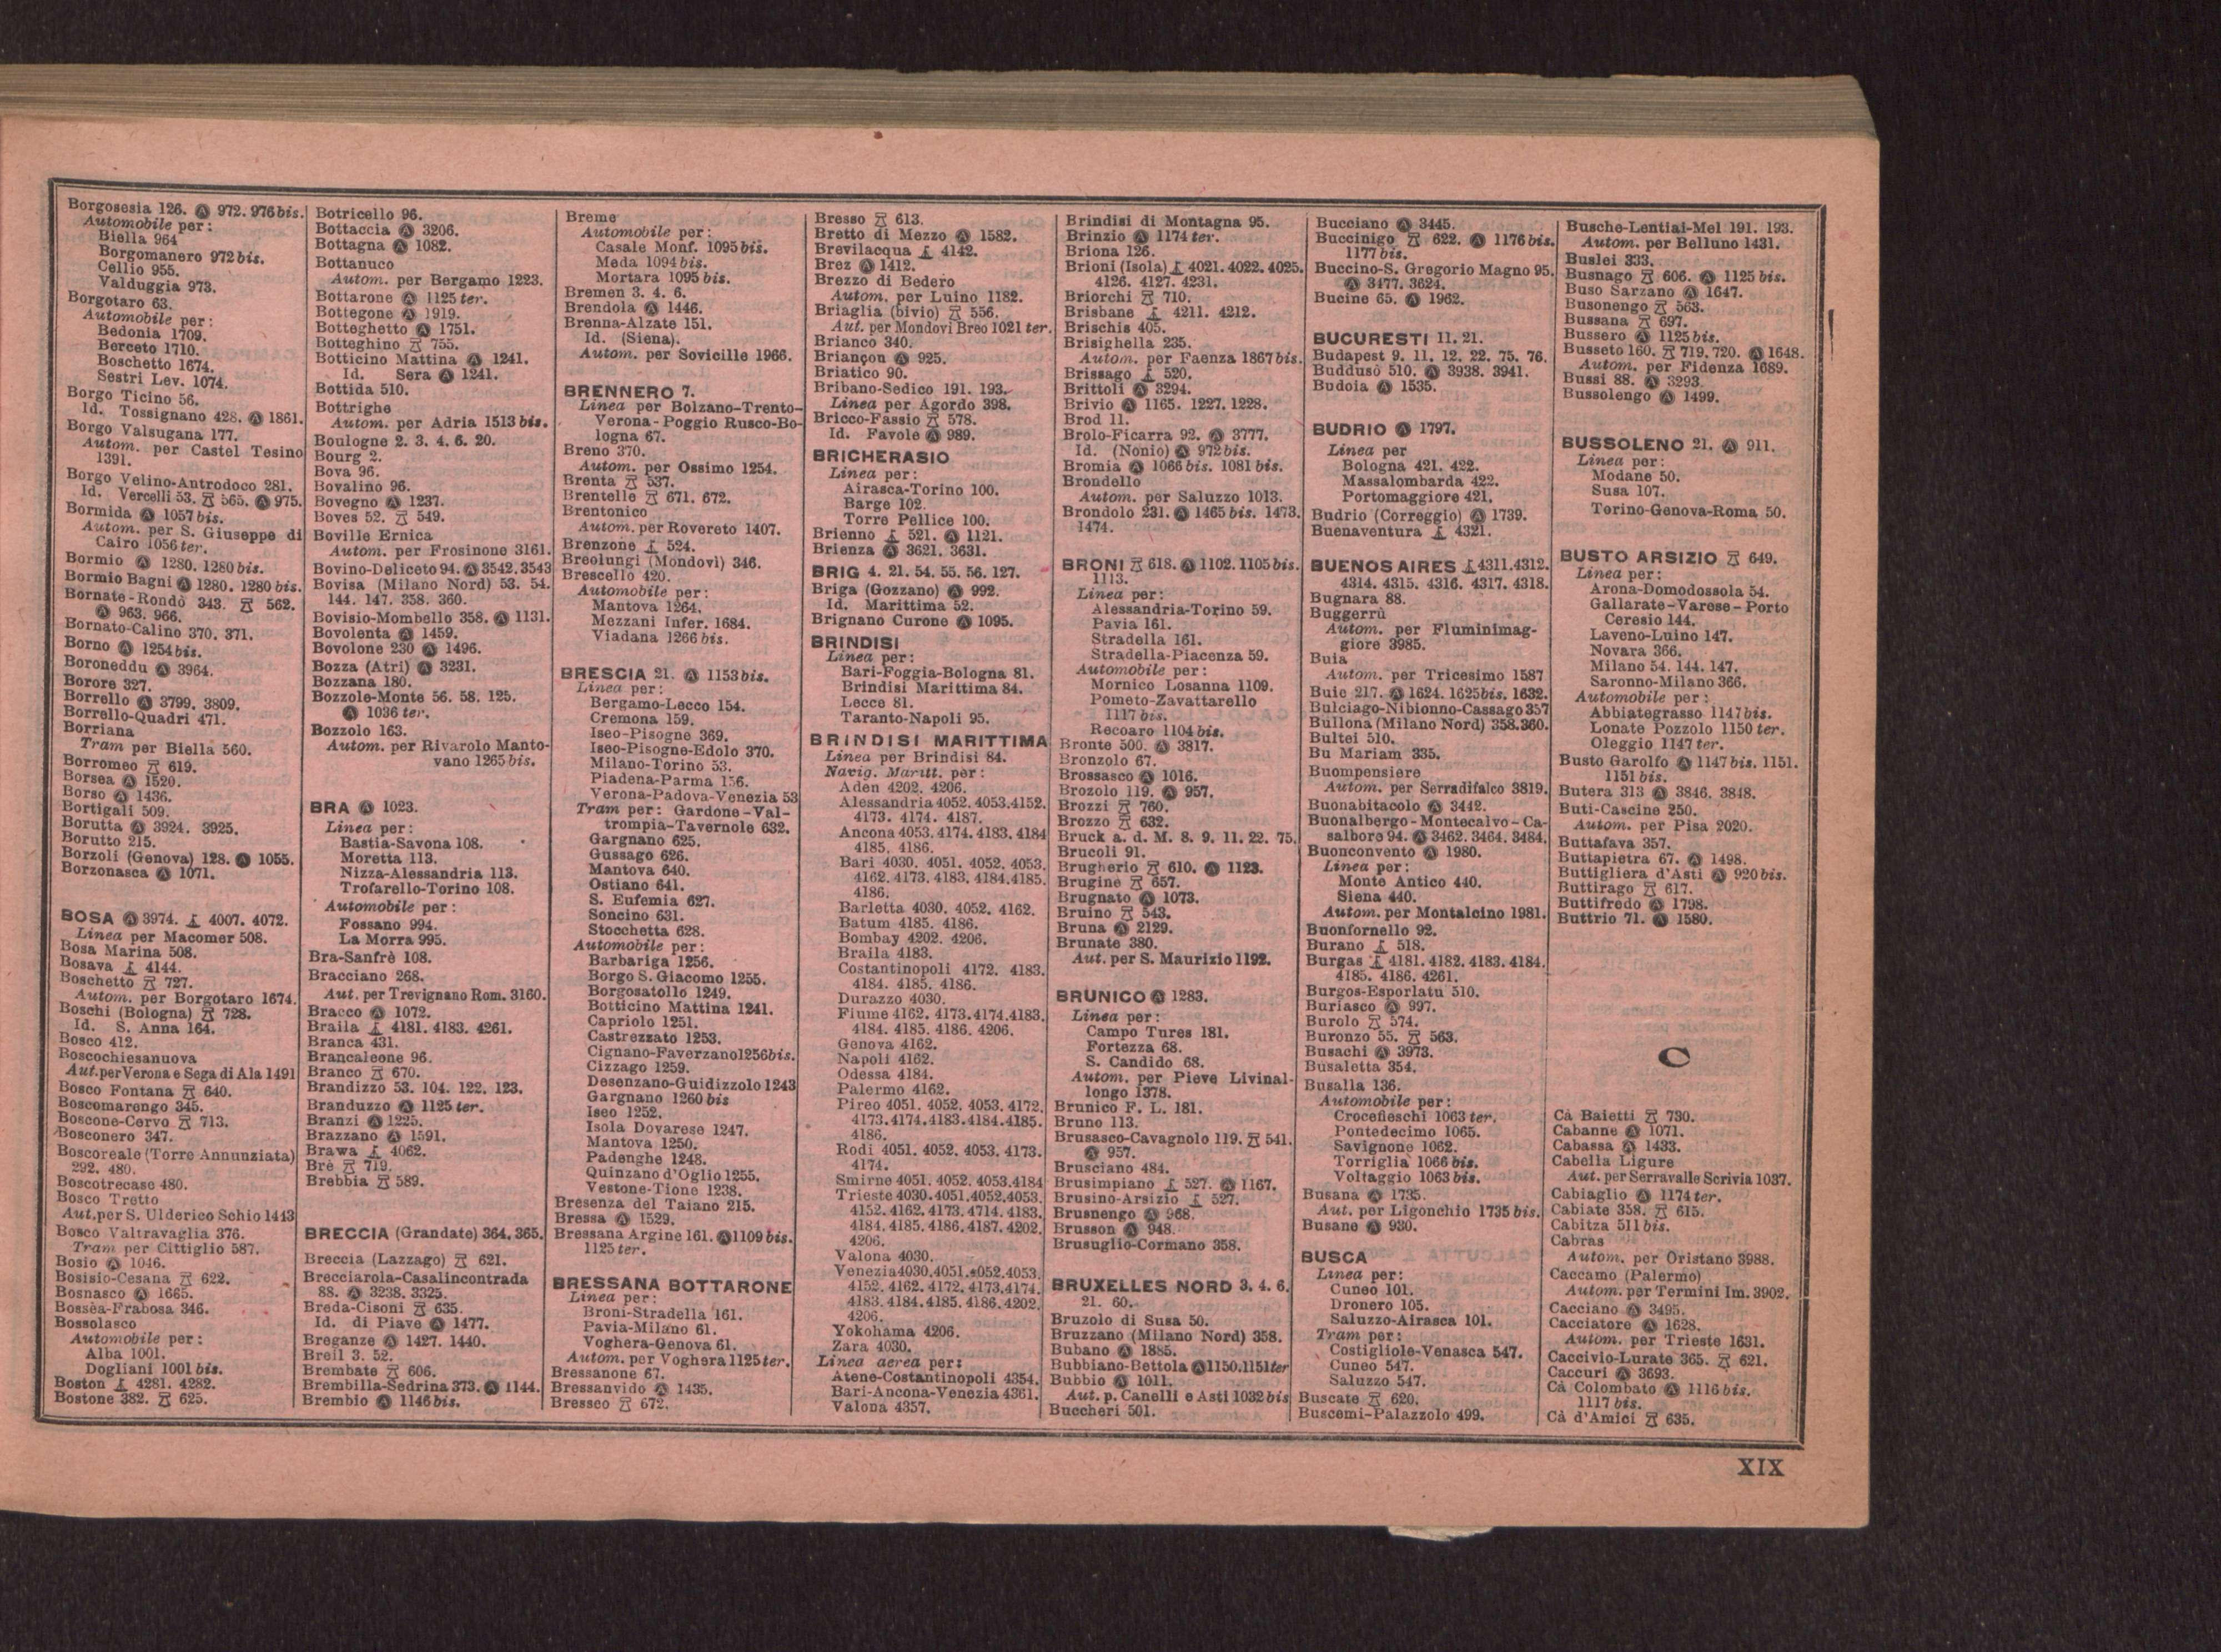 Borgosesia 126. Ⓐ 972. 976 bis.
Automobile per:
Biella 964
Borgomanero 972 bis.
Cellio 955.
Valduggia 973.
Borgotaro 63.
Automobile per:
Bedonia 1709.
Berceto 1710.
Boschetto 1674.
Sestri Lev. 1074.
Borgo Ticino 56.
Id. Tossignano 428. Ⓐ 1861.
Borgo Valsugana 177.
Autom. per Castel Tesino
1391.
Borgo Velino-Antrodoco 281.
Id. Vercelli 53. 565. Ⓐ 975.
Bormida Ⓐ 1057 bis.
Autom. per S. Giuseppe di
Cairo 1056 ter.
Bormio Ⓐ 1280. 1280 bis.
Bormio Bagni Ⓐ 1280. 1280 bis.
Bornate-Rondò 343. 562.
Ⓐ 963. 966.
Bornato-Calino 370. 371.
Borno Ⓐ 1254 bis.
Boroneddu Ⓐ 3964.
Borore 327.
Borrello Ⓐ 3799. 3809.
Borrello-Quadri 471.
Borriana
Tram per Biella 560.
Borromeo 619.
Borsea Ⓐ 1520.
Borso Ⓐ 1436.
Bortigali 509.
Borutta Ⓐ 3924. 3925.
Borutto 215.
Borzoli (Genova) 128. Ⓐ 1055.
Borzonasca Ⓐ 1071.
BOSA Ⓐ 3974. 4007. 4072.
Linea per Macomer 508.
Bosa Marina 508.
Bosava 4144.
Boschetto 727.
Autom. per Borgotaro 1674.
Boschi (Bologna) 728.
Id. S. Anna 164.
Bosco 412.
Boscochiesanuova
Aut. per Verona e Sega di Ala 1491
Bosco Fontana 640.
Boscomarengo 345.
Boscone-Cervo 713.
Bosconero 347.
Boscoreale (Torre Annunziata)
292. 480.
Boscotrecase 480.
Bosco Tretto
Aut. per S. Ulderico Schio 1443
Bosco Valtravaglia 376.
Tram per Cittiglio 587.
Bosio Ⓐ 1046.
Bosisio-Cesana 622.
Bosnasco Ⓐ 1665.
Bossèa-Frabosa 346.
Bossolasco
Automobile per:
Alba 1001.
Dogliani 1001 bis.
Boston 4281. 4282.
Bostone 382. 625.
Botricello 96.
Bottaccia Ⓐ 3206.
Bottagna Ⓐ 1082.
Bottanuco
Autom. per Bergamo 1223.
Bottarone Ⓐ 1125 ter.
Bottegone Ⓐ 1919.
Botteghetto Ⓐ 1751.
Botteghino 755.
Botticino Mattina Ⓐ 1241.
Id. Sera Ⓐ 1241.
Bottida 510.
Bottrighe
Autom. per Adria 1513 bis.
Boulogne 2. 3. 4. 6. 20.
Bourg 2.
Bova 96.
Bovalino 96.
Bovegno Ⓐ 1237.
Boves 52. 549.
Boville Ernica
Autom. per Frosinone 3161.
Bovino-Deliceto 94. Ⓐ 3542. 3543
Bovisa (Milano Nord) 53. 54.
144. 147. 358. 360.
Bovisio-Mombello 358. Ⓐ 1131.
Bovolenta Ⓐ 1459.
Bovolone 230 Ⓐ 1496.
Bozza (Atri) Ⓐ 3231.
Bozzana 180.
Bozzole-Monte 56. 58. 125.
Ⓐ 1036 ter.
Bozzolo 163.
Autom. per Rivarolo Manto-
vano 1265 bis.
BRA Ⓐ 1023.
Linea per:
Bastia-Savona 108.
Moretta 113.
Nizza-Alessandria 113.
Trofarello-Torino 108.
Automobile per:
Fossano 994.
La Morra 995.
Bra-Sanfrè 108.
Bracciano 268.
Aut. per Trevignano Rom. 3160.
Bracco Ⓐ 1072.
Braila 4181. 4183. 4261.
Branca 431.
Brancaleone 96.
Branco 670.
Brandizzo 53. 104. 122. 123.
Branduzzo Ⓐ 1125 ter.
Branzi Ⓐ 1225.
Brazzano Ⓐ 1591.
Brawa 4062.
Brè 719.
Brebbia 589.
BRECCIA (Grandate) 364. 365.
Breccia (Lazzago) 621.
Brecciarola-Casalincontrada
88. Ⓐ 3238. 3325.
Breda-Cisoni 635.
Id. di Piave Ⓐ 1477.
Breganze Ⓐ 1427. 1440.
Breil 3. 52.
Brembate 606.
Brembilla-Sedrina 373. Ⓐ 1144.
Brembio Ⓐ 1146 bis.
Breme
Automobile per:
Casale Monf. 1095 bis.
Meda 1094 bis.
Mortara 1095 bis.
Bremen 3. 4. 6.
Brendola Ⓐ 1446.
Brenna-Alzate 151.
Id. (Siena).
Autom. per Sovicille 1966.
BRENNERO 7.
Linea per Bolzano-Trento-
Verona-Poggio Rusco-Bo-
logna 67.
Breno 370.
Autom. per Ossimo 1254.
Brenta 537.
Brentelle 671. 672.
Brentonico
Autom. per Rovereto 1407.
Brenzone 524.
Breolungi (Mondovì) 346.
Brescello 420.
Automobile per:
Mantova 1264.
Mezzani Infer. 1684.
Viadana 1266 bis.
BRESCIA 21. Ⓐ 1153 bis.
Linea per:
Bergamo-Lecco 154.
Cremona 159.
Iseo-Pisogne 369.
Iseo-Pisogne-Edolo 370.
Milano-Torino 53.
Piadena-Parma 156.
Verona-Padova-Venezia 53
Tram per: Gardone-Val-
trompia-Tavernole 632.
Gargnano 625.
Gussago 626.
Mantova 640.
Ostiano 641.
S. Eufemia 627.
Soncino 631.
Stocchetta 628.
Automobile per:
Barbariga 1256.
Borgo S. Giacomo 1255.
Borgosatollo 1249.
Botticino Mattina 1241.
Capriolo 1251.
Castrezzato 1253.
Cignano-Faverzano 1256 bis.
Cizzago 1259.
Desenzano-Guidizzolo 1243
Gargnano 1260 bis
Iseo 1252.
Isola Dovarese 1247.
Mantova 1250.
Padenghe 1248.
Quinzano d'Oglio 1255.
Vestone-Tione 1238.
Bresenza del Taiano 215.
Bressa Ⓐ 1529.
Bressana Argine 161. Ⓐ 1109 bis.
1125 ter.
BRESSANA BOTTARONE
Linea per:
Broni-Stradella 161.
Pavia-Milano 61.
Voghera-Genova 61.
Autom. per Voghera 1125 ter.
Bressanone 67.
Bressanvido Ⓐ 1435.
Bresseo 672.
Bresso 613.
Bretto di Mezzo Ⓐ 1582.
Brevilacqua 4142.
Brez Ⓐ 1412.
Brezzo di Bedero
Autom. per Luino 1182.
Briaglia (bivio) 556.
Aut. per Mondovì Breo 1021 ter.
Brianco 340.
Briançon Ⓐ 925.
Briatico 90.
Bribano-Sedico 191. 193.
Linea per Agordo 398.
Bricco-Fassio 578.
Id. Favole Ⓐ 989.
BRICHERASIO
Linea per:
Airasca-Torino 100.
Barge 102.
Torre Pellice 100.
Brienno 521. Ⓐ 1121.
Brienza Ⓐ 3621. 3631.
BRIG 4. 21. 54. 55. 56. 127.
Briga (Gozzano) Ⓐ 992.
Id. Marittima 52.
Brignano Curone Ⓐ 1095.
BRINDISI
Linea per:
Bari-Foggia-Bologna 81.
Brindisi Marittima 84.
Lecce 81.
Taranto-Napoli 95.
BRINDISI MARITTIMA
Linea per Brindisi 84.
Navig. Maritt. per:
Aden 4202. 4206.
Alessandria 4052. 4053. 4152.
4173. 4174. 4187.
Ancona 4053. 4174. 4183. 4184
4185. 4186.
Bari 4030. 4051. 4052. 4053.
4162. 4173. 4183. 4184. 4185.
4186.
Barletta 4030. 4052. 4162.
Batum 4185. 4186.
Bombay 4202. 4206.
Braila 4183.
Costantinopoli 4172. 4183.
4184. 4185. 4186.
Durazzo 4030.
Fiume 4162. 4173. 4174. 4183.
4184. 4185. 4186. 4206.
Genova 4162.
Napoli 4162.
Odessa 4184.
Palermo 4162.
Pireo 4051. 4052. 4053. 4172.
4173. 4174. 4183. 4184. 4185.
4186.
Rodi 4051. 4052. 4053. 4173.
4174.
Smirne 4051. 4052. 4053. 4184
Trieste 4030. 4051. 4052. 4053.
4152. 4162. 4173. 4714. 4183.
4184. 4185. 4186. 4187. 4202.
4206.
Valona 4030.
Venezia 4030. 4051. 4052. 4053.
4152. 4162. 4172. 4173. 4174.
4183. 4184. 4185. 4186. 4202.
4206.
Yokohama 4206.
Zara 4030.
Linea aerea per:
Atene-Costantinopoli 4354.
Bari-Ancona-Venezia 4361.
Valona 4357.
Brindisi di Montagna 95.
Brinzio Ⓐ 1174 ter.
Briona 126.
Brioni (Isola) 4021. 4022. 4025.
4126. 4127. 4231.
Briorchi 710.
Brisbane 4211. 4212.
Brischis 405.
Brisighella 235.
Autom. per Faenza 1867 bis.
Brissago 520.
Brittoli Ⓐ 3294.
Brivio Ⓐ 1165. 1227. 1228.
Brod 11.
Brolo-Ficarra 92. Ⓐ 3777.
Id. (Nonio) Ⓐ 972 bis.
Bromia Ⓐ 1066 bis. 1081 bis.
Brondello
Autom. per Saluzzo 1013.
Brondolo 231. Ⓐ 1465 bis. 1473.
1474.
BRONI 618. Ⓐ 1102. 1105 bis.
1113.
Linea per:
Alessandria-Torino 59.
Pavia 161.
Stradella 161.
Stradella-Piacenza 59.
Automobile per:
Mornico Losanna 1109.
Pometo-Zavattarello
1117 bis.
Recoaro 1104 bis.
Bronte 500. Ⓐ 3817.
Bronzolo 67.
Brossasco Ⓐ 1016.
Brozolo 119. Ⓐ 957.
Brozzi 760.
Brozzo 632.
Bruck a. d. M. 8. 9. 11. 22. 75.
Brucoli 91.
Brugherio 610. Ⓐ 1123.
Brugine 657.
Brugnato Ⓐ 1073.
Bruino 543.
Bruna Ⓐ 2129.
Brunate 380.
Aut. per S. Maurizio 1192.
BRUNICO Ⓐ 1283.
Linea per:
Campo Tures 181.
Fortezza 68.
S. Candido 68.
Autom. per Pieve Livinal-
longo 1378.
Brunico F. L. 181.
Bruno 113.
Brusasco-Cavagnolo 119. 541.
Ⓐ 957.
Brusciano 484.
Brusimpiano 527. Ⓐ 1167.
Brusino-Arsizio 527.
Brusnengo Ⓐ 968.
Brusson Ⓐ 948.
Brusuglio-Cormano 358.
BRUXELLES NORD 3. 4. 6.
21. 60.
Bruzolo di Susa 50.
Bruzzano (Milano Nord) 358.
Bubano Ⓐ 1885.
Bubbiano-Bettola Ⓐ 1150. 1151 ter
Bubbio Ⓐ 1011.
Aut. p. Canelli e Asti 1032 bis
Buccheri 501.
Bucciano Ⓐ 3445.
Buccinigo 622. Ⓐ 1176 bis.
1177 bis.
Buccino-S. Gregorio Magno 95.
Ⓐ 3477. 3624.
Bucine 65. Ⓐ 1962.
BUCURESTI 11. 21.
Budapest 9. 11. 12. 22. 75. 76.
Buddusò 510. Ⓐ 3938. 3941.
Budoia Ⓐ 1535.
BUDRIO Ⓐ 1797.
Linea per
Bologna 421. 422.
Massalombarda 422.
Portomaggiore 421.
Budrio (Correggio) Ⓐ 1739.
Buenaventura 4321.
BUENOS AIRES 4311. 4312.
4314. 4315. 4316. 4317. 4318.
Bugnara 88.
Buggerrù
Autom. per Fluminimag-
giore 3985.
Buia
Autom. per Tricesimo 1587
Buie 217. Ⓐ 1624. 1625 bis. 1632.
Bulciago-Nibionno-Cassago 357
Bullona (Milano Nord) 358. 360.
Bultei 510.
Bu Mariam 335.
Buompensiere
Autom. per Serradifalco 3819.
Buonabitacolo Ⓐ 3442.
Buonalbergo-Montecalvo-Ca-
salbore 94. Ⓐ 3462. 3464. 3484.
Buonconvento Ⓐ 1980.
Linea per:
Monte Antico 440.
Siena 440.
Autom. per Montalcino 1981.
Buonfornello 92.
Burano 518.
Burgas 4181. 4182. 4183. 4184.
4185. 4186. 4261.
Burgos-Esporlatu 510.
Buriasco Ⓐ 997.
Burolo 574.
Buronzo 55. 563.
Busachi Ⓐ 3973.
Busaletta 354.
Busalla 136.
Automobile per:
Crocefieschi 1063 ter.
Pontedecimo 1065.
Savignone 1062.
Torriglia 1066 bis.
Voltaggio 1063 bis.
Busana Ⓐ 1735.
Aut. per Ligonchio 1735 bis.
Busane Ⓐ 930.
BUSCA
Linea per:
Cuneo 101.
Dronero 105.
Saluzzo-Airasca 101.
Tram per:
Costigliole-Venasca 547.
Cuneo 547.
Saluzzo 547.
Buscate 620.
Buscemi-Palazzolo 499.
Busche-Lentiai-Mel 191. 193.
Autom. per Belluno 1431.
Buslei 333.
Busnago 606. Ⓐ 1125 bis.
Buso Sarzano Ⓐ 1647.
Busonengo 563.
Bussana 697.
Bussero Ⓐ 1125 bis.
Busseto 160. 719. 720. Ⓐ 1648.
Autom. per Fidenza 1689.
Bussi 88. Ⓐ 3293.
Bussolengo Ⓐ 1499.
BUSSOLENO 21. Ⓐ 911.
Linea per:
Modane 50.
Susa 107.
Torino-Genova-Roma 50.
BUSTO ARSIZIO 649.
Linea per:
Arona-Domodossola 54.
Gallarate-Varese-Porto
Ceresio 144.
Laveno-Luino 147.
Novara 366.
Milano 54. 144. 147.
Saronno-Milano 366.
Automobile per:
Abbiategrasso 1147 bis.
Lonate Pozzolo 1150 ter.
Oleggio 1147 ter.
Busto Garolfo Ⓐ 1147 bis. 1151.
1151 bis.
Butera 313 Ⓐ 3846. 3848.
Buti-Cascine 250.
Autom. per Pisa 2020.
Buttafava 357.
Buttapietra 67. Ⓐ 1498.
Buttigliera d'Asti Ⓐ 920 bis.
Buttirago 617.
Buttifredo Ⓐ 1798.
Buttrio 71. Ⓐ 1580.
C
Cà Baietti 730.
Cabanne Ⓐ 1071.
Cabassa Ⓐ 1433.
Cabella Ligure
Aut. per Serravalle Scrivia 1037.
Cabiaglio Ⓐ 1174 ter.
Cabiate 358. 615.
Cabitza 511 bis.
Cabras
Autom. per Oristano 3988.
Caccamo (Palermo)
Autom. per Termini Im. 3902.
Cacciano Ⓐ 3495.
Cacciatore Ⓐ 1628.
Autom. per Trieste 1631.
Caccivio-Lurate 365. 621.
Caccuri Ⓐ 3693.
Cà Colombato Ⓐ 1116 bis.
1117 bis.
Cà d'Amici 635.
XIX